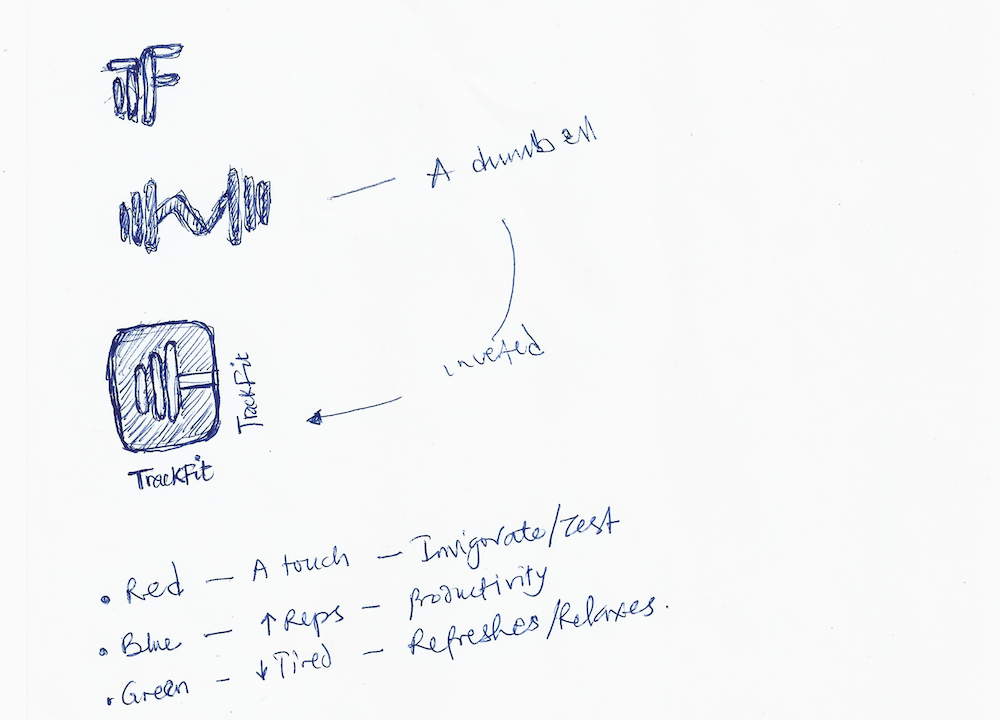 TF
A dumbbell
inverted
TrackFit
TrackFit
• Red — A touch — Invigorate/Zest
• Blue — ↑ Reps — Productivity
• Green — ↓ Tired — Refreshes/Relaxes.